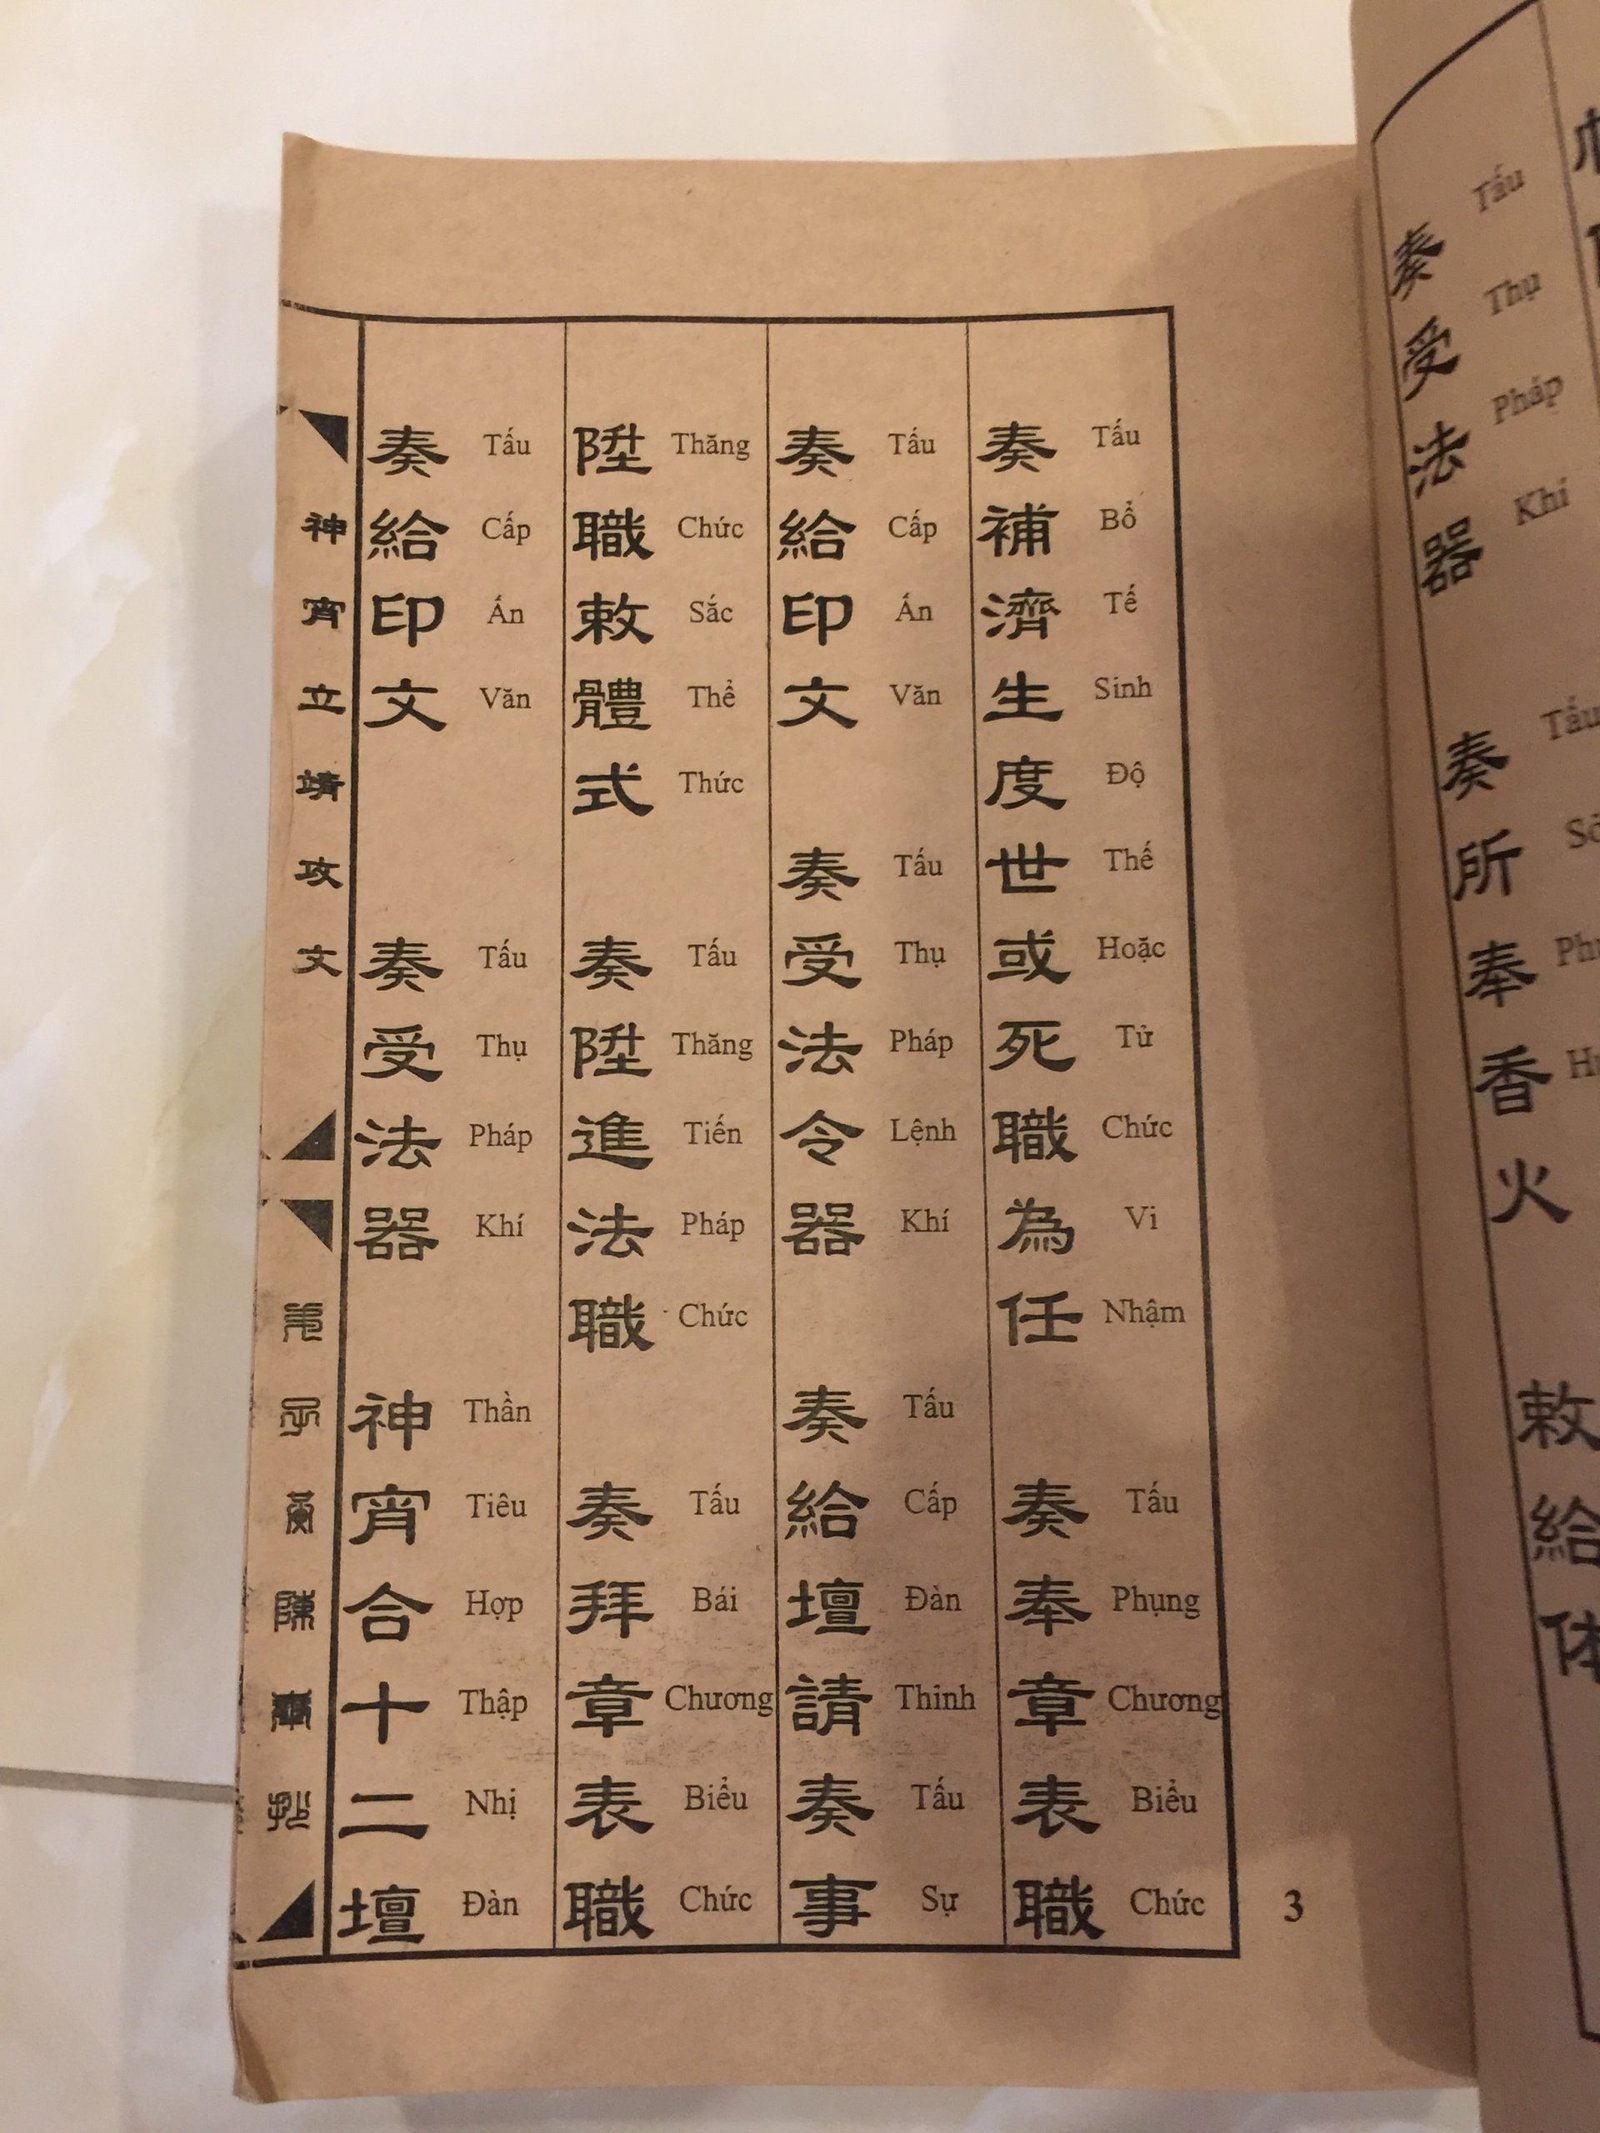 奏補濟生度世或死職為任 奏奉章表職
Tấu Bổ Tế Sinh Độ Thế Hoặc Tử Chức Vi Nhậm Tấu Phụng Chương Biểu Chức
奏給印文 奏受法令器 奏給壇請奏事
Tấu Cấp Ấn Văn Tấu Thụ Pháp Lệnh Khí Tấu Cấp Đàn Thỉnh Tấu Sự
陞職敕體式 奏陞進法職 奏拜章表職
Thăng Chức Sắc Thể Thức Tấu Thăng Tiến Pháp Chức Tấu Bái Chương Biểu Chức
奏給印文 奏受法器 神宵合十二壇
Tấu Cấp Ấn Văn Tấu Thụ Pháp Khí Thần Tiêu Hợp Thập Nhị Đàn
神宵立靖攻文
子黃陳
3
奏受法器 奏所奉香火 敕給体
Tấu Thụ Pháp Khí Tấu